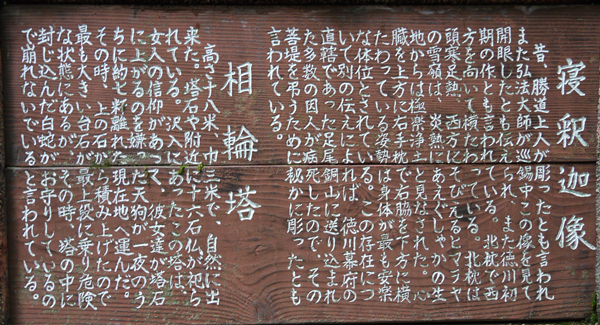 寝釈迦像
昔、勝道上人が彫ったとも言われ
また弘法大師が巡錫中この像を見て
開眼したとも伝えられ、また徳川初
期の作とも言われている。北枕で西
方を向いて横たわっている。北枕は
頭寒足熱、西方にそびえるヒマラヤ
の雪嶺は、炎熱にあえぐしやかの生
地からは極楽浄土と見なされた。心
臓を上方に右手枕で右脇を下方に横
たわっている姿勢は身体が最も安楽
な体位とされている。この存在につ
いて別の伝えによれば、徳川幕府の
直轄であった足尾銅山に送り込まれ
た多数の囚人が病死したので、その
菩提を弔うために秘かに彫ったとも
言われている。
相輪塔
高さ十八米、巾三米で、自然に出
来た。塔石や附近に十六石仏が祀ら
れている。沢入にあったこの塔は、
女人の信仰があつく、彼女達が塔石
に上がるのを嫌った天狗が一夜のう
ちに約七粁離れた現在地へ運んだ。
その時、上の石から積み上げたので
最も大きい台石が最上段に乗り危険
な状態にあるが、その時、塔の中に
封じ込んだ白蛇がお守りしているの
で崩れないでいると言われている。